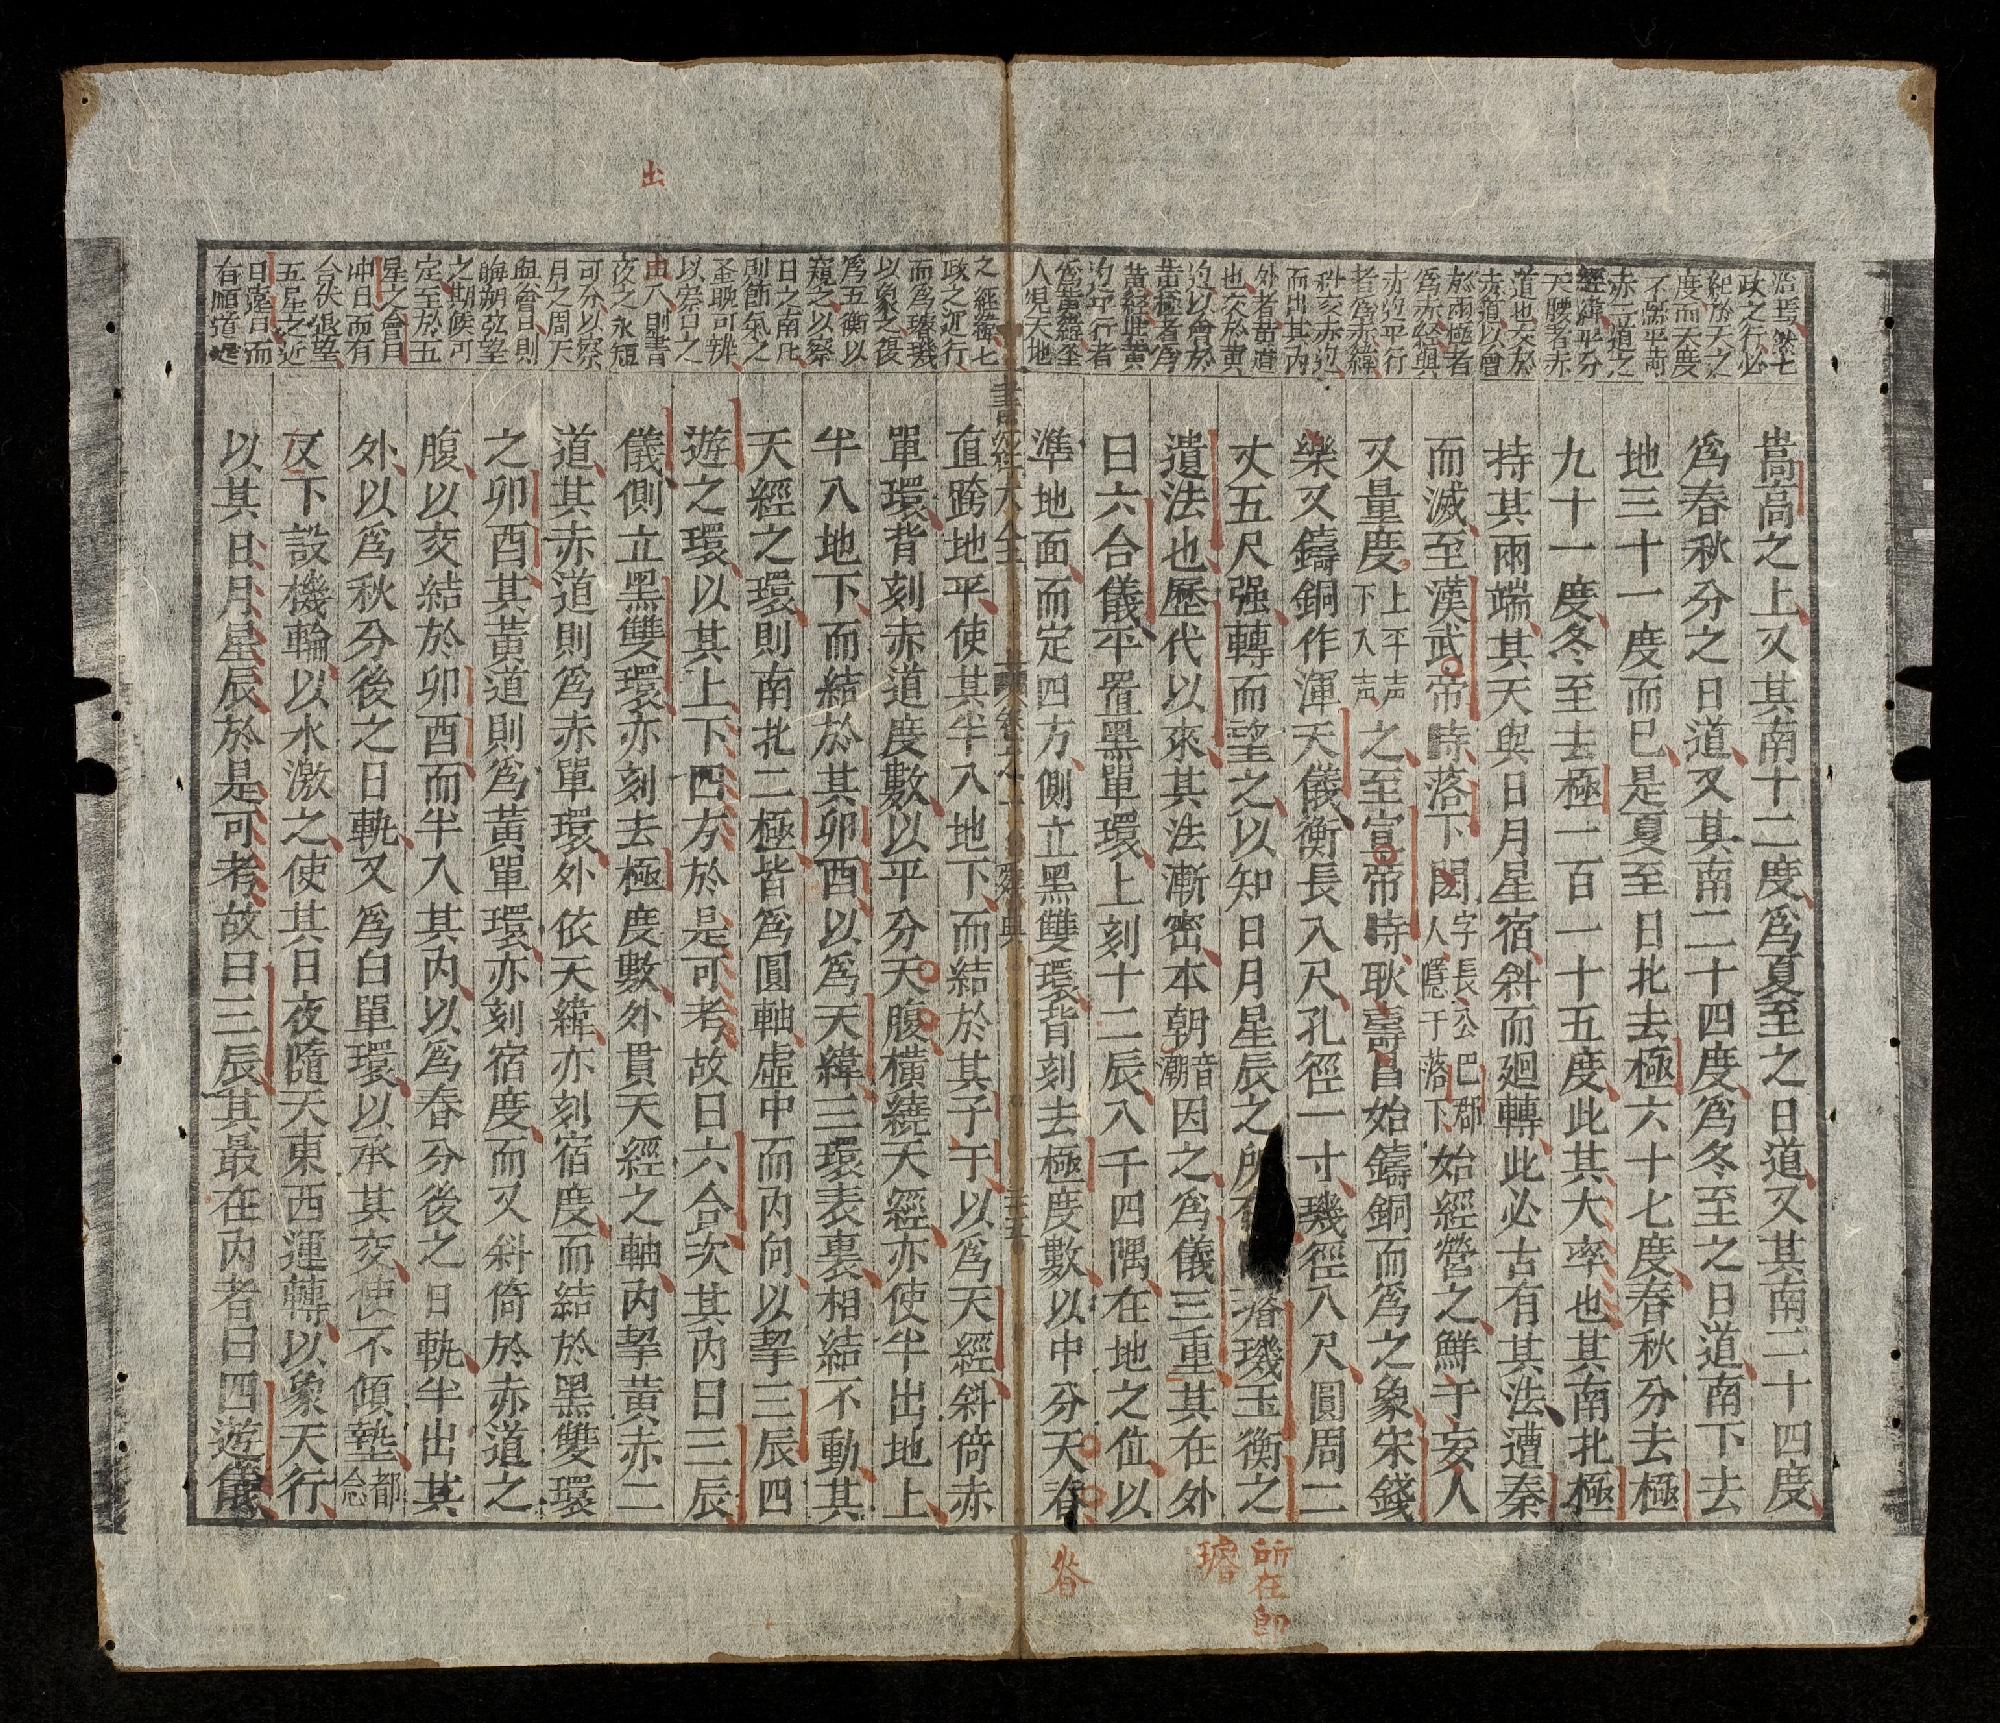 治焉然七
政之行必
紀於天之
度而天度
赤二道之
經緯平分
天腰者赤
道也交於
赤道以會
於兩極者
為赤經與
赤道平行
者為赤緯
斜交赤道
而出其內
外者黃道
也交於黃
道以會於
黃極者為
黃經與黃
道平行者
為黃緯至
人見天地
之經緯七
政之運行
而為璿璣
以象之復
為玉衡以
窺之以察
日之南北
則節氣之
盈縮可辨
以察日之
出入則晝
夜之永短
可分以察
月之周天
與會日則
晦朔弦望
之期候可
定至於五
星之會日
冲日而有
合伏退望
五星之近
日遠日而
有順逆遲
嵩高之上又其南十二度爲夏至之日道又其南二十四度
爲春秋分之日道又其南二十四度爲冬至之日道南下去
地三十一度而巳是夏至日北去極六十七度春秋分去極
九十一度冬至去極一百一十五度此其大率也其南北極
持其兩端其天與日月星宿斜而廻轉此必古有其法遭秦
而滅至漢武帝時落下閎字長公巴郡人隱于落下始經營之鮮于妄人
又量度上平声下入声之至宣帝時耿壽昌始鑄銅而爲之象宋錢
樂又鑄銅作渾天儀衡長八尺孔徑一寸璣徑八尺圓周二
丈五尺强轉而望之以知日月星辰之所在璿璣玉衡之
遺法也歷代以來其法漸密本朝音潮因之爲儀三重其在外
曰六合儀平置黑單環上刻十二辰八千四隅在地之位以
準地面而定四方側立黑雙環背刻去極度數以中分天脊
直跨地平使其半入地下而結於其子午以爲天經斜倚赤
單環背刻赤道度數以平分天腹橫繞天經亦使半出地上
半入地下而結於其卯酉以爲天緯三環表裏相結不動其
天經之環則南北二極皆爲圓軸虛中而內向以挈三辰四
遊之環以其上下四方於是可考故曰六合次其內曰三辰
儀側立黑雙環亦刻去極度數外貫天經之軸內挈黃赤二
道其赤道則爲赤單環外依天緯亦刻宿度而結於黑雙環
之卯酉其黃道則爲黃單環亦刻宿度而又斜倚於赤道之
腹以交結於卯酉而半入其內以爲春分後之日軌半出其
外以爲秋分後之日軌又爲白單環以承其交使不傾墊都念
反下設機輪以水激之使其日夜隨天東西運轉以象天行
以其日月星辰於是可考故曰三辰其最在內者曰四遊儀
出
所在即
璿
脊